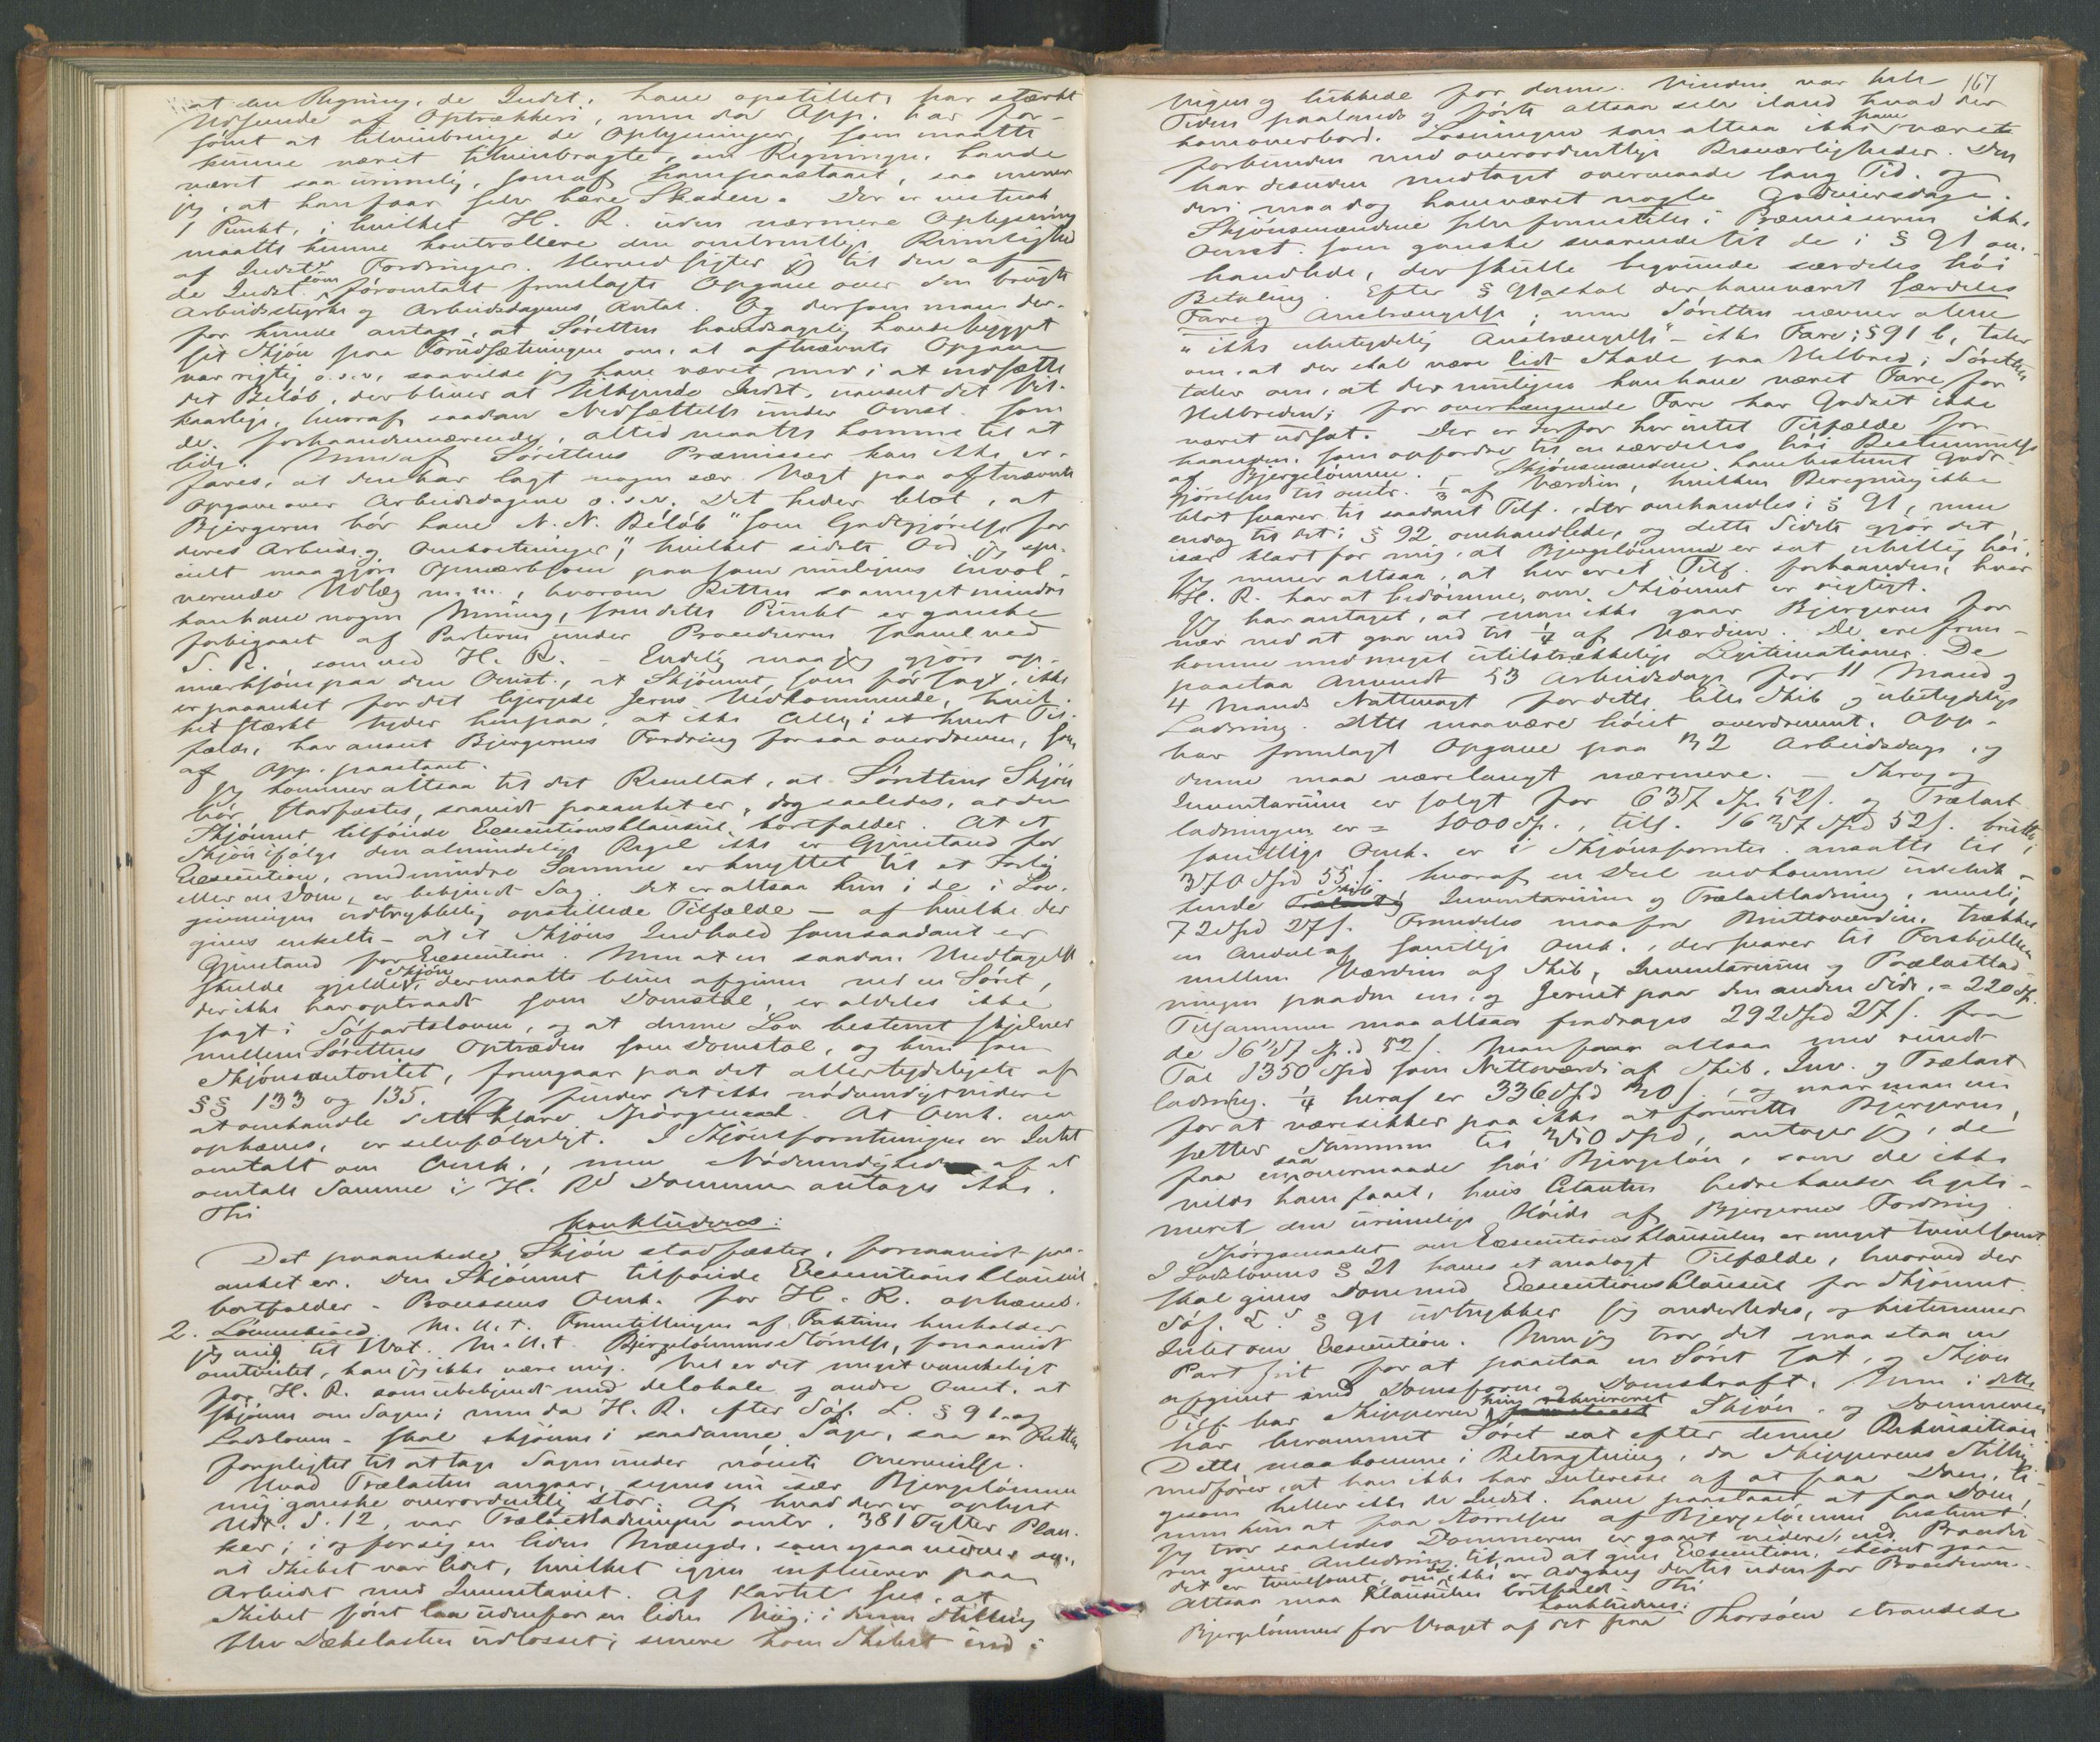 at den Regning, de Indst. have opstillet, har stærkt
Udseende af Optrækkeri, men da App. har for-
sömt at tilveiebringe de Oplysninger, som maatte
kunne været tilveiebragte, om Regningen havde
været saa urimelig, som af ham paastaaet, saa mener
jeg, at han faar selv bære Skaden. Der er vistnok
1 Punkt, i hvilket H. R. uden nærmere Oplysning
maatte kunne kontrollere den omtrentlige Rimelighed
af Indst.s Fordringer. Herved sigter jeg til den af
de Indst. som föromtalt fremlagte Opgave over den brugte
Arbeidsstyrke og Arbeidsdagenes Antal. Og dersom man der-
for kunde antage, at Söretten hovedsagelig havde bygget
sit Skjön paa Forudsætningen om, at aftnævnte Opgave
var rigtig o.s.v., saa vilde jeg have været med i at nedsætte
det Belöb, der bliver at tilkjende Indst., uanset det Vil-
kaarlige, hvoraf saadan Nedsættelse under Omst. som
de forhaandenværende, altid maatte komme til at
lide. Men af Sörettens Præmisser kan ikke er-
fares, at den har lagt nogen sær. Vægt paa oftnævnte
Opgave over Arbeidsdagene o.s.v. Det heder blot, at
Bjergerne bör have N. N. Belöb "som Godtgjörelse for
deres Arbeide og Omkostninger", hvilket sidste Ord jeg spe-
cielt maa gjöre opmærksom paa som muligens invol-
verende Udlæg m.m., hvorom Retten saameget mindre
kan have nogen Mening, som dette Punkt er ganske
forbigaaet af Parterne under Proceduren saavel ved
S. R., som ved H. R. – Endelig maa jeg gjöre op-
mærksom paa den Omst., at Skjönnet, som för sagt, ikke
er paaanket for det bjergede Jerns Vedkommende, hvil-
ket stærkt tyder hen paa, at ikke Alle, i et hvert Til-
fælde, har anseet Bjergernes Fordring for saa overdreven, som
af App. paastaaet.
Jeg kommer altsaa til det Resultat, at Sörettens Skjön
bör stadfæstes, saavidt paaanket er, dog saaledes, at den
Skjönnet tilföiede Executionsklausul bortfalder. At et
Skjön ifölge den almindelige Regel ikke er Gjenstand for
Execution, medmindre Samme er knyttet til et Forlig
eller en Dom, er bekjendt Sag. Det er altsaa kun i de i Lov-
givningen udtrykkelig opstillede Tilfælde – af hvilke der
gives enkelte – at et Skjöns Indhold som saadant er
Gjenstand for Execution. Men at en saadan Undtagelse
skulde gjelde Skjön, der maatte blive afgivne ved en Söret,
der ikke har optraadt som Domstol, er aldeles ikke
sagt i Söfartsloven, og at denne Lov bestemt skjelner
mellem Sörettens Optræden som Domstol, og kun som
Skjönsautoritet, fremgaar paa det allertydeligste af
§§ 133 og 135. Jeg finder det ikke nödvendigt videre
at omhandle dette klare Spörgsmaal. At Omk. maa
ophæves, er selvfölgeligt. I Skjönsforretningen er Intet
omtalt om Omk., men Nödvendigheden af at
omtale Samme i H. Rs Dommen antages ikke.
Thi
konkluderes:
Det paaankede Skjön stadfæstes, forsaavidt paa-
anket er. Den Skjönnet tilföiede Executionsklausul
bortfalder. Processens Omk. for H. R. ophæves.
2. Lövenskiold. M. H. t. Fremstillingen af Faktum henholder
jeg mig til Vot. M. H. t. Bjergelönnens Störrelse, forsaavidt
omtvistet, kan jeg ikke være enig. Vel er det meget vanskeligt
for H. R. som ubekjendt med de lokale og andre Omst. at
skjönne om Sagen; men da H. R. efter Söf. L. § 91 og
Lodsloven – skal skjönne i saadanne Sager, saa er Retten
forpligtet til at tage Sagen under nöieste Overveielse.
Hvad Trælasten angaar, synes nu især Bjergelönnen
mig ganske overordentlig stor. Af hvad der er oplyst
Udt. S. 12, var Trælastladningen omtr. 381 Tylter Plan-
ker; i og for sig en liden Mængde, som ogsaa
at Skibet var lidet, hvilket igjen influerer paa
Arbeidet med Inventariet. Af Kartet sees, at
Skibet först laa udenfor en liden Vig; i denne Stilling
blev Dækslasten udlosset; senere kom Skibet ind i
167
Vigen og lukkede for denne. Vinden var hele
Tiden paalands og förte altsaa selv iland hvad der
kom overbord. Losningen kan altsaa ikke have været
forbunden med overordentlige Besværligheder. Den
har desuden medtaget overmaade lang Tid, og
deri maa dog have været nogle Godveirsdage.
Skjönsmændene selv fremstiller i Præmisserne ikke
Omst. som ganske svarende til de i § 91 om-
handlede, der skulle begrunde særdeles höi
Betaling. Efter § 91 a skal der have været særdeles
Fare og Anstrængelse; men Söretten nævner alene
"ikke ubetydelig Anstrængelse" – ikke Fare; § 91 b, taler
om, at der skal være lidt Skade paa Helbred; Söretten
taler om, at der muligens kan have været Fare for
Helbreden; for overhængende Fare har Godset ikke
været udsat. Der er derfor her intet Tilfælde for-
haanden, som opfordrer til en særdeles höi Bestemmelse
af Bjergelönnen. – Skjönsmændene have bestemt Godt-
gjörelsen til omtr. 1/3 af Værdien, hvilken Beregning ikke
blot svarer til saadant Tilf., der omhandles i § 91, men
endog til det i § 92 omhandlede, og dette Sidste gjör det
især klart for mig, at Bjergelönnen er sat ubillig höi.
Jeg mener altsaa, at her er et Tilf. forhaanden, hvor
H. R. har at bedömme, om Skjönnet er rigtigt.
Jeg har antaget, at man ikke gaar Bjergerne for
nær ved at gaa ned til 1/4 af Værdien. De ere frem-
komne med meget utilstrækkelige Legitimationer. De
paastaa Anvendt 53 Arbeidsdage for 11 Mand og
4 Mands Nattevagt for dette lille Skib og ubetydelige
Ladning. Dette maa være höist overdrevent. App.
har fremlagt Opgave paa 32 Arbeidsdage, og
denne maa være langt nærmere. – Skrog og
Inventarium er solgt for 637 Sp. 52 s. og Trælast-
ladningen er = 1000 Sp., tils. 1637 Spd 52 s. brutto
samtlige Omk. er i Skjönsforretn. ansatte til
370 Spd 55 s. hvoraf en Deel vedkomme udeluk-
kende Skib, Inventarium og Trælastladning, nemlig
72 Spd 27 s. Fremdeles maa fra Bruttoværdien trækkes
en Andeel af samtlige Omk., der svarer til Forskjellen
mellem Værdien af Skib, Inventarium og Trælastlad-
ningen paa den ene, og Jernet paa den anden Side, = 220 Sp.
Tilsammen maa altsaa fradrages 292 Spd 27 s. fra
de 1637 Sp.d 52 s. Man faar altsaa med rundt
Tal 1350 Spd som Nettoværdi af Skib, Inv. og Trælast-
ladning. 1/4 heraf er 336 Spd 30 s., og naar man nu
for at være sikker paa ikke at forurette Bjergerne,
sætter Summen til 350 Spd, antager jeg, de
faa en saa overmaade höi Bjergelön, som de ikke
vilde have faaet, hvis Citanten bedre havde legiti-
meret den urimelige Höide af Bjergernes Fordring.
Spörgsmaalet om Executionsklausulen er meget tvivlsomt.
I Lodslovens § 21 haves et analogt Tilfælde, hvorved der
skal gives Dom med Executionsklausul for Skjönnet.
Söf. L.s § 91 udtrykker sig anderledes, og bestemmer
Intet om Execution. Men jeg tror det maa staa en
Part frit for at paastaa en Söret sat, og Skjön
afgivet med Domsform og Domskraft. Men i dette
Tilf. har Skipperen kun rekvireret Skjön, og Dommeren
har berammet Söret sat efter denne Rekvisition.
Dette maa komme i Betragtning, da Skipperens Stilling
medförer, at han ikke har Interesse af at faa Dom, li-
gesom heller ikke de Indst. have paastaaet at faa Dom,
men kun at faa Störrelsen af Bjergelönnen bestemt.
Jeg tror saaledes Dommeren er gaaet videre, end Procedu-
ren giver Anledning til, ved at give Execution, skjönt
det er tvivlsomt, om ikke er Adgang dertil udenfor Proceduren.
Altsaa maa Klausulen bortfalde. Thi
konkluderes:
Bjergelönnen for Vraget af det paa Thorsöen strandede